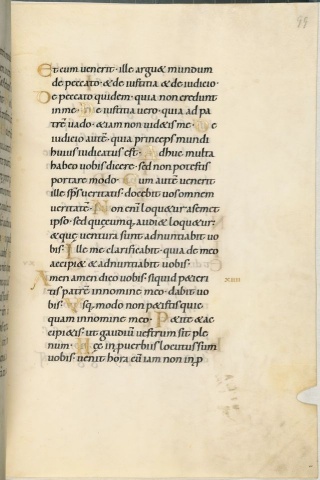 99
Et cum venerit · ille arguet mundum
de peccato · & de iustitia & de iudicio ·
De peccato quidem · quia non credunt
in me · De iustitia vero · quia ad pa
trē vado · & iam non videbitis me · De
iudicio autē · quia princeps mundi
huius iudicatus est · Adhuc multa
habeo vobis dicere · sed non potestis
portare modo · Cum autē venerit
ille sp̄s veritatis · docebit vos omnem
veritatē · Non enī loquetur a semet
ipso · sed quęcumq; audiet loquetur ·
& quę ventura sunt adnuntiabit vo
bis · Ille me clarificabit · quia de meo
accipiet & adnuntiabit vobis ·
Amen amen dico vobis · si quid petieri
tis patrē in nomine meo · dabit vo
bis · Usq; modo non petistis quic
quam in nomine meo · Petite & ac
cipietis · ut gaudiū vestrum sit ple
num · Hęc in puerbiis locutus sum
vobis · venit hora cū iam non in p